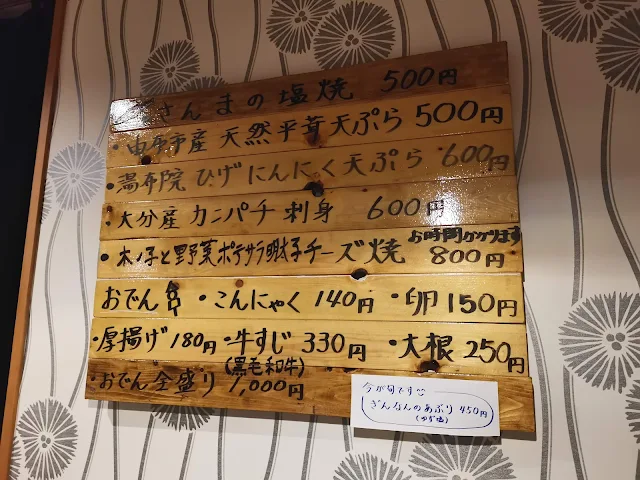 さんまの塩焼 500円
・由布市産 天然平茸天ぷら 500円
・湯布院 ひげにんにく天ぷら 600円
・大分産 カンパチ刺身 600円
お時間かかります
・木ノ子と野菜ポテサラ明太子チーズ焼 800円
おでん ・こんにゃく 140円 ・卵 150円
・厚揚げ 180円 ・牛すじ 330円 ・大根 250円
(黒毛和牛)
・おでん全盛り 1,000円
今が旬です
ぎんなんのあぶり 450円